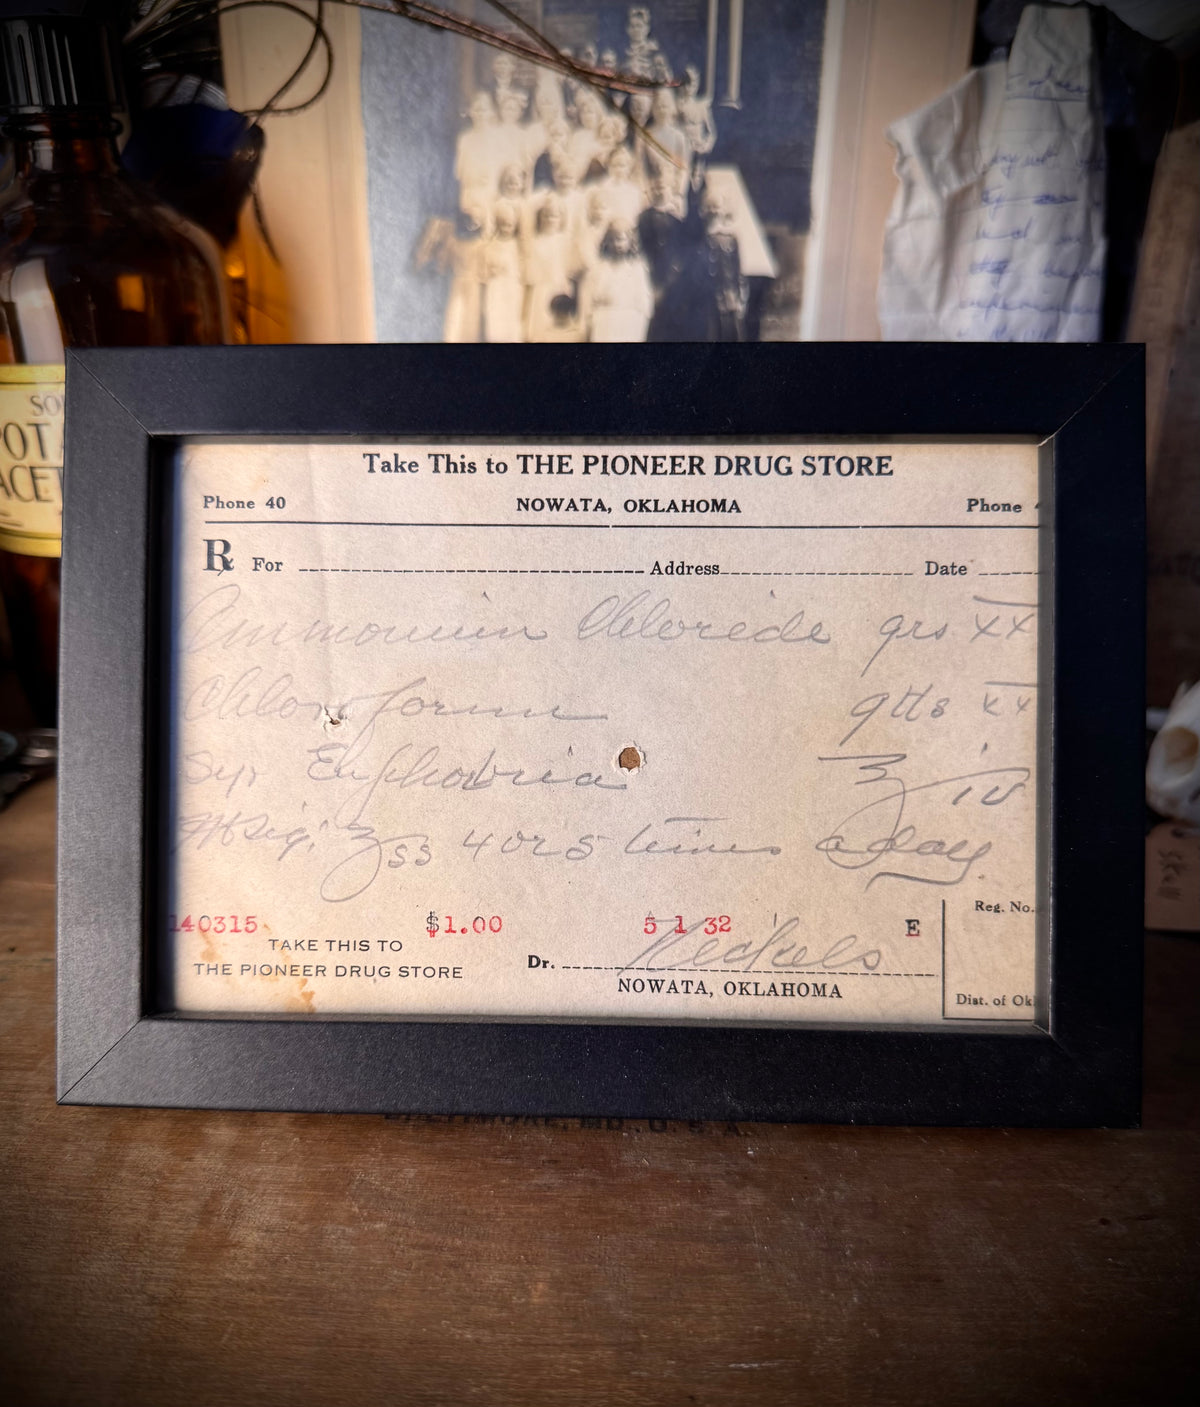 Take This to THE PIONEER DRUG STORE
Phone 40 NOWATA, OKLAHOMA Phone
℞ For Address Date
Ammonium Chloride grs XX
Chloroform gtts XX
Syr Euphorbia ʒ iv
Sig. ʒss 4 or 5 times a day.
140315 $1.00 5 1 32 E
Reg. No.
TAKE THIS TO
THE PIONEER DRUG STORE
Dr.
NOWATA, OKLAHOMA
Dist. of Ok
SO
POT
ACET